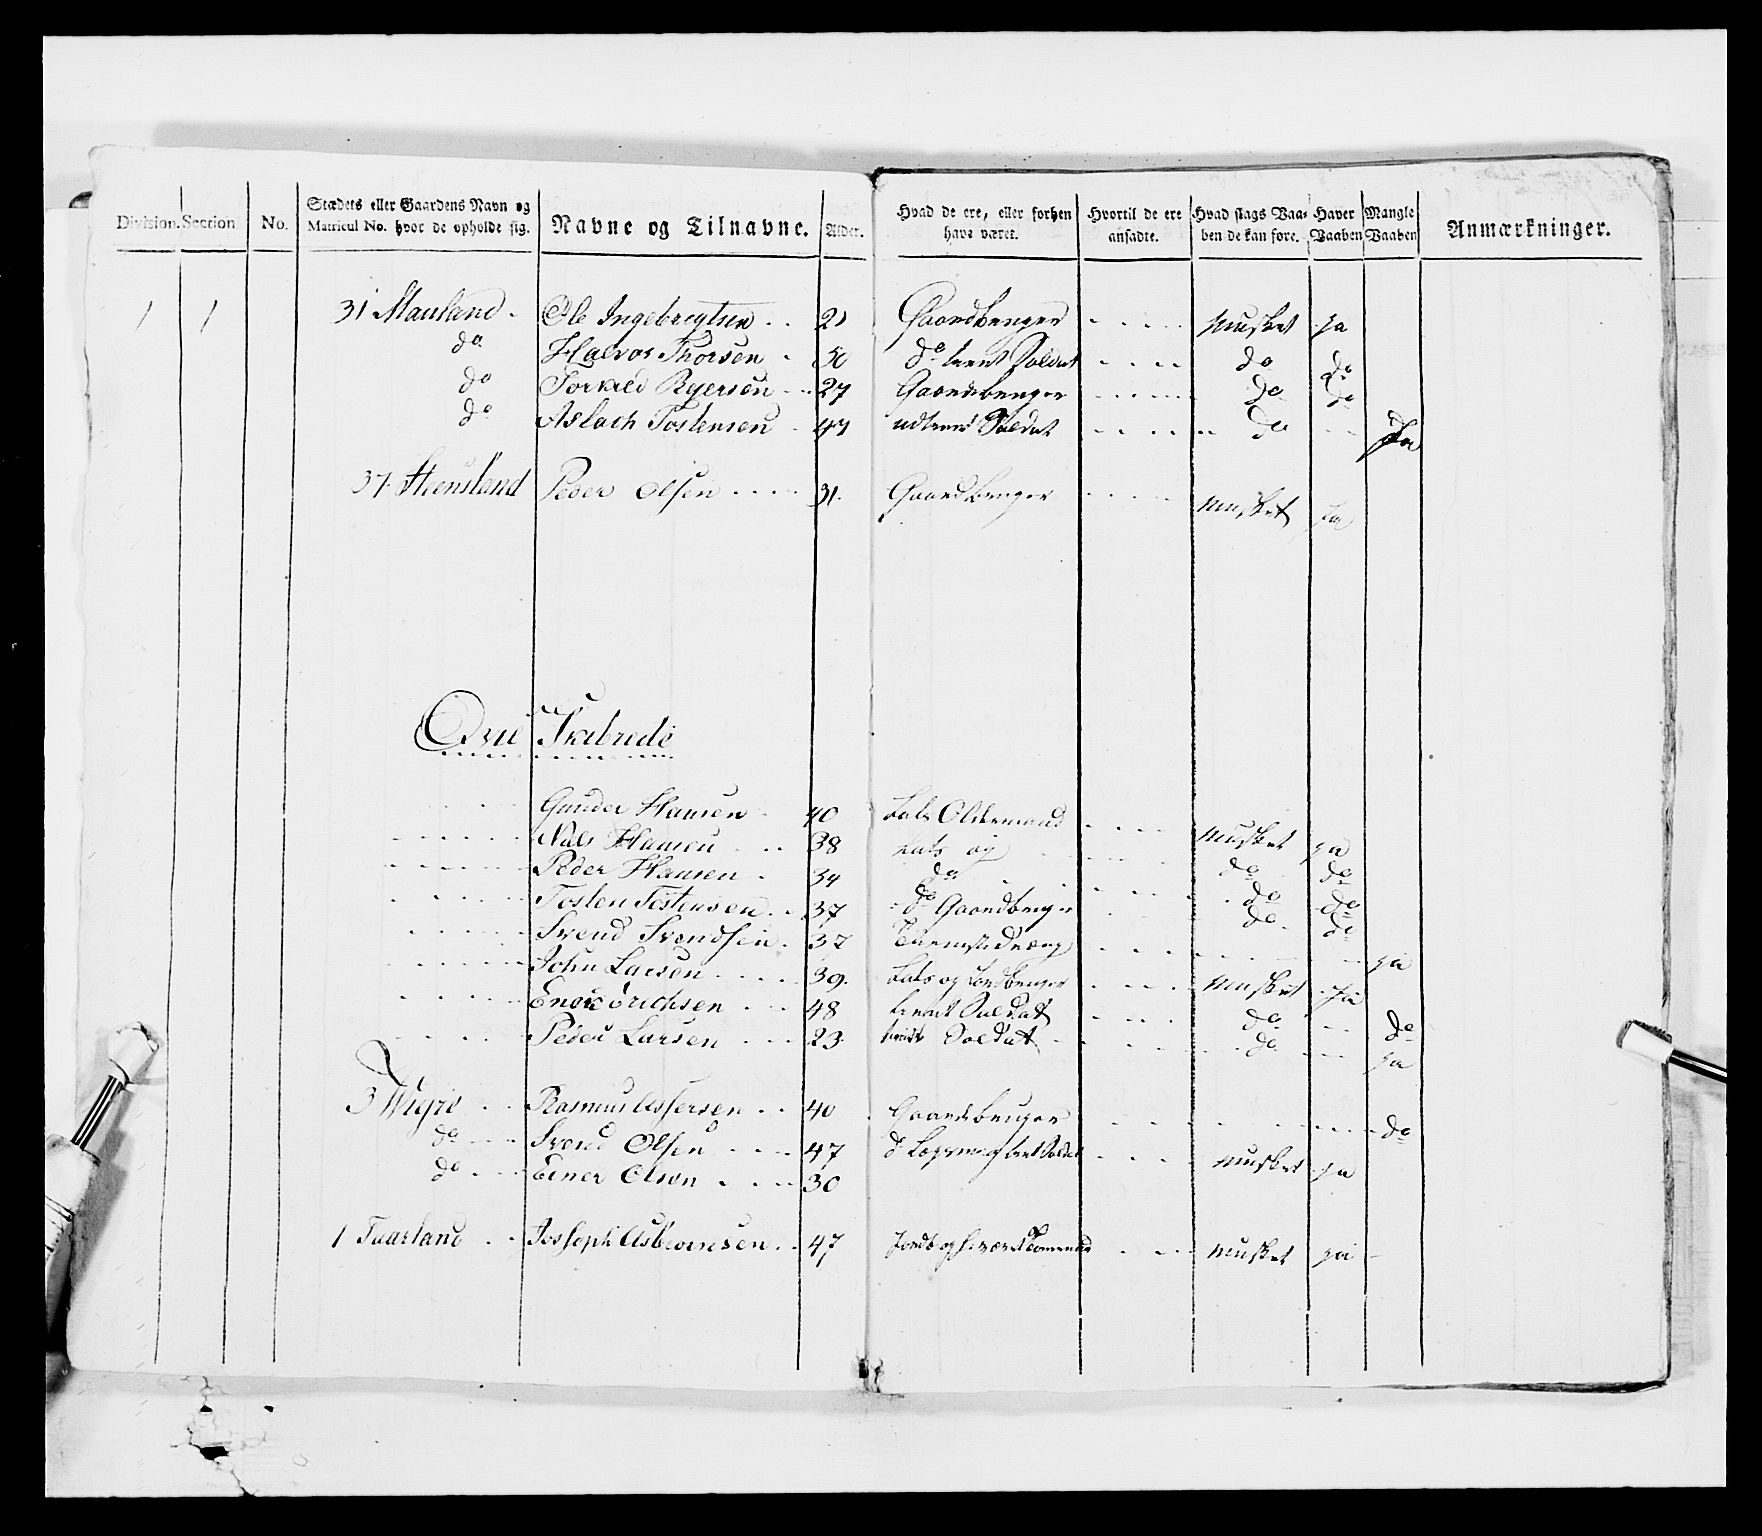 Division. Section No. Stædets eller Gaardens Navn og Matricul No. hvor de opholde sig. Navne og Tilnavne. Alder. Hvad de ere, eller forhen have været. Hvortil de ere ansadte. Hvad slags Vaaben de kan føre. Haver Vaaben Mangle Vaaben Anmærkninger.
1 1 31 Mauland Ole Ingebregtsen 21 Gaardbruger Musket ja
do Halvor Thorsen 50 do tient Soldat do do
do Torkild Ryersen 27 Gaardbruger do do
do Aslach Tostensen 47 udtient Soldat do Ja
37 Steensland Peder Olsen 31 Gaardbruger Musket Ja
Gunder Hansen 40 Lods Oldermand Musket ja
Niels Hansen 38 Lots og do do
Peder Hansen 34 do do do
Tosten Tostensen 37 do Gaardbruger do do
Svend Svendsen 37 ja
John Larsen 39 Lods og Jordbruger Musket Ja
Erichsen 48 tient Soldat do do
Peder Larsen 23 Soldat do ja
3 Rasmus Assersen 40 Gaardbruger do
do Svend Olsen 47 do tient Soldat Musket ja
do Einer Olsen 30
1 Taarland Joseph Asbiørnsen 47 Musket ja